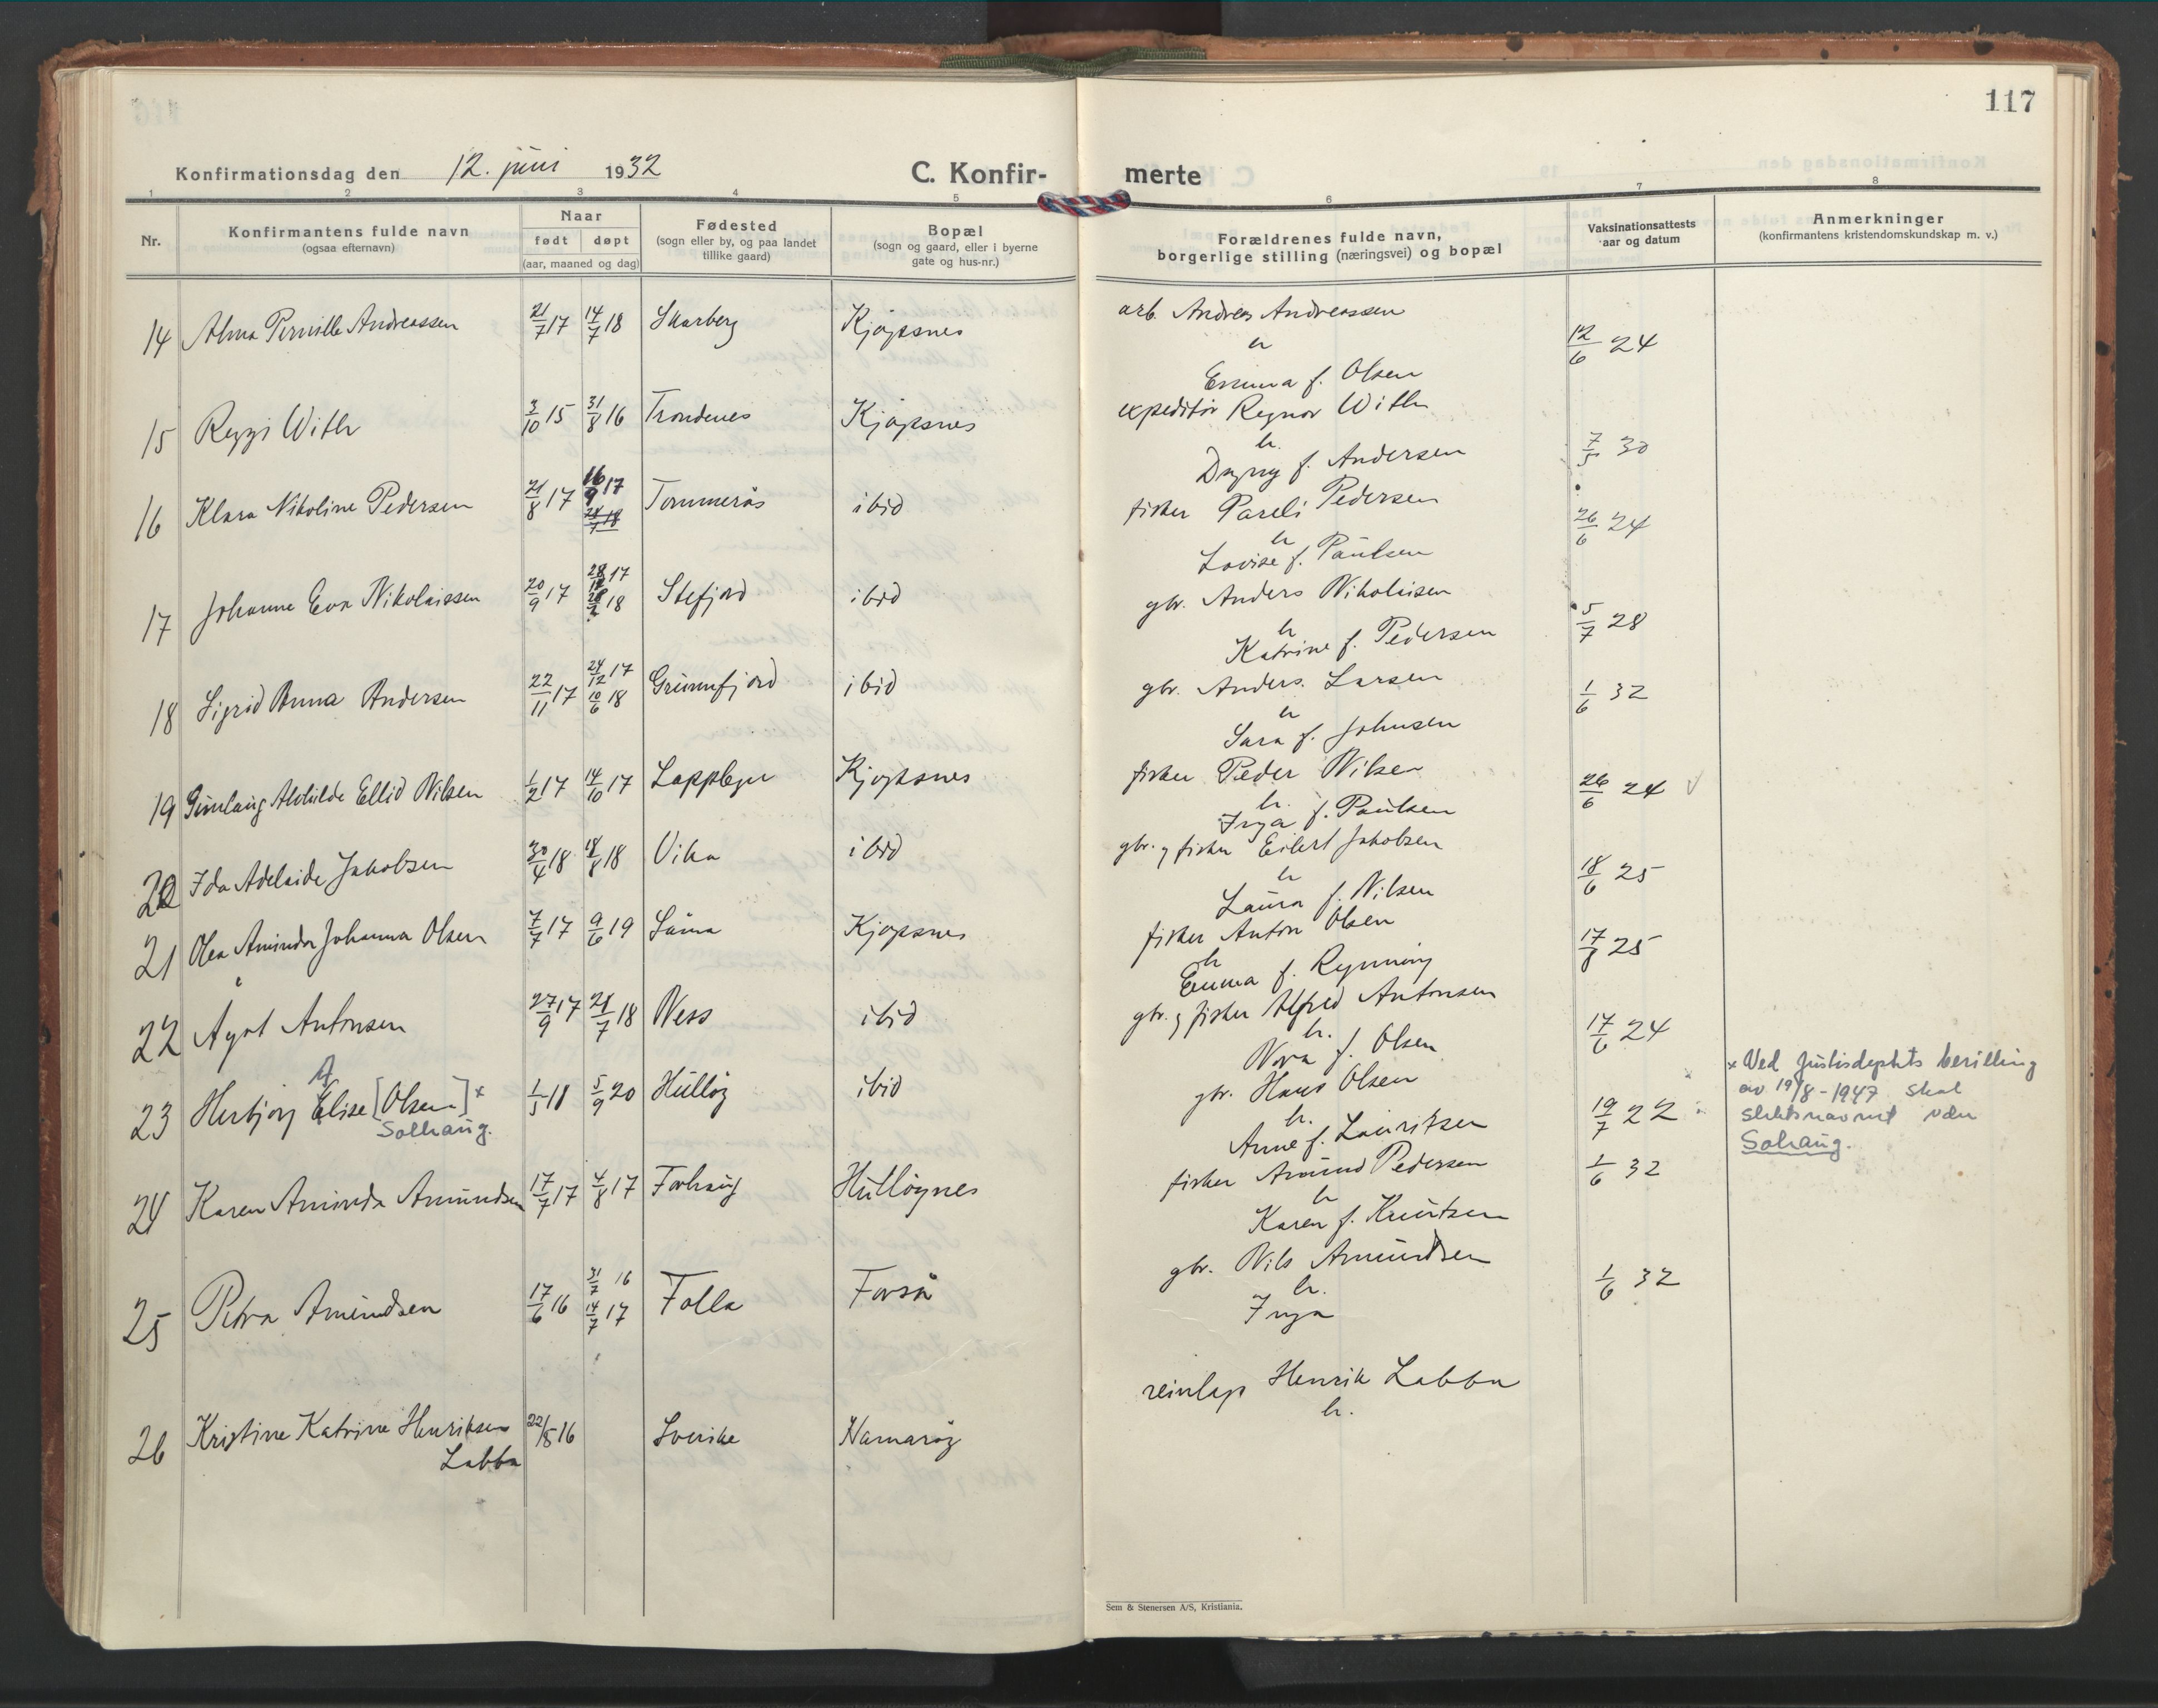 117
Konfirmationsdag den 12. juni 1932
C. Konfir-merte
1 2 3 4 5 6 7 8
Nr.
Konfirmantens fulde navn
(ogsaa efternavn)
Naar
født døpt
(aar, maaned og dag)
Fødested
(sogn eller by, og paa landet
tillike gaard)
Bopæl
(sogn og gaard, eller i byerne
gate og hus-nr.)
Forældrenes fulde navn,
borgerlige stilling (næringsvei) og bopæl
Vaksinationsattests
aar og datum
Anmerkninger
(konfirmantens kristendomskundskap m. v.)
14 Alma Pernille Andreassen 21/7 17 14/7 18 Skarberg Kjøpsnes arb. Andreas Andreassen
Emma f. Olsen
12/6 24
15 With 3/10 15 31/8 16 Trondenes Kjøpsnes expeditør Regnor With
h.
Dagny f. Andersen
7/5 30
16 Klara Nikoline Pedersen 21/8 17 16/9 17 Tommerås ibid fisker Pareli Pedersen
h
Lovise f. Paulsen
26/6 24
17 Johanne Eva Nikolaissen 20/9 17 28/12 17 18 Stefjord ibid gbr. Anders Nikolaisen
h
Katrine f. Pedersen
5/7 28
18 Sigrid Anna Andersen 22/11 17 24/12 17 10/6 18 Grunnfjord ibid gbr. Anders Larsen
h
Sara f. Johnsen
1/6 32
19 Gunlaug Alvhilde Ellid Nilsen 1/2 17 14/10 17 Kjøpsnes fisker Peder Nilsen
h.
Inga f. Paulsen
26/6 24
20 Ida Adelaide Jakobsen 30/4 18 18/8 18 Vika ibid gbr. og fisker Eilert Jakobsen
h
Laura f. Nilsen
18/6 25
21 Olea Aminda Johanna Olsen 7/7 17 9/6 19 Kjøpsnes fisker Anton Olsen
h
Emma f. Rynning
17/ 25
22 Ågot Antonsen 27/9 17 21/7 18 Ness ibid gbr. og fisker Alfred Antonsen
h.
Nora f. Olsen
17/6 24
23 Herbjørg Elise [Olsen] x
Solhaug.
1/5 18 5/9 20 Hulløy ibid gbr. Hans Olsen
h.
Anne f. Lauritsen
19/7 22
x Ved Justisdeptets berilling
av 19/8-1947 skal
slektsnavnet være
Solhaug.
24 Karen Aminda Amundsen 17/7 17 4/8 17 Forhaug Hulløynes fisker Amund Pedersen
h
Karen f. Knutsen
1/6 32
25 Petra Amundsen 17/6 16 31/7 16 14/7 17 Folla Forså gbr. Nils Amundsen
h.
Inga
1/6 32
26 Kristine Katrine Henriksen
Labba
22/5 16 Sverike Hamarøy reinlap Henrik Labba
h.
Sem & Stenersen A/S, Kristiania.